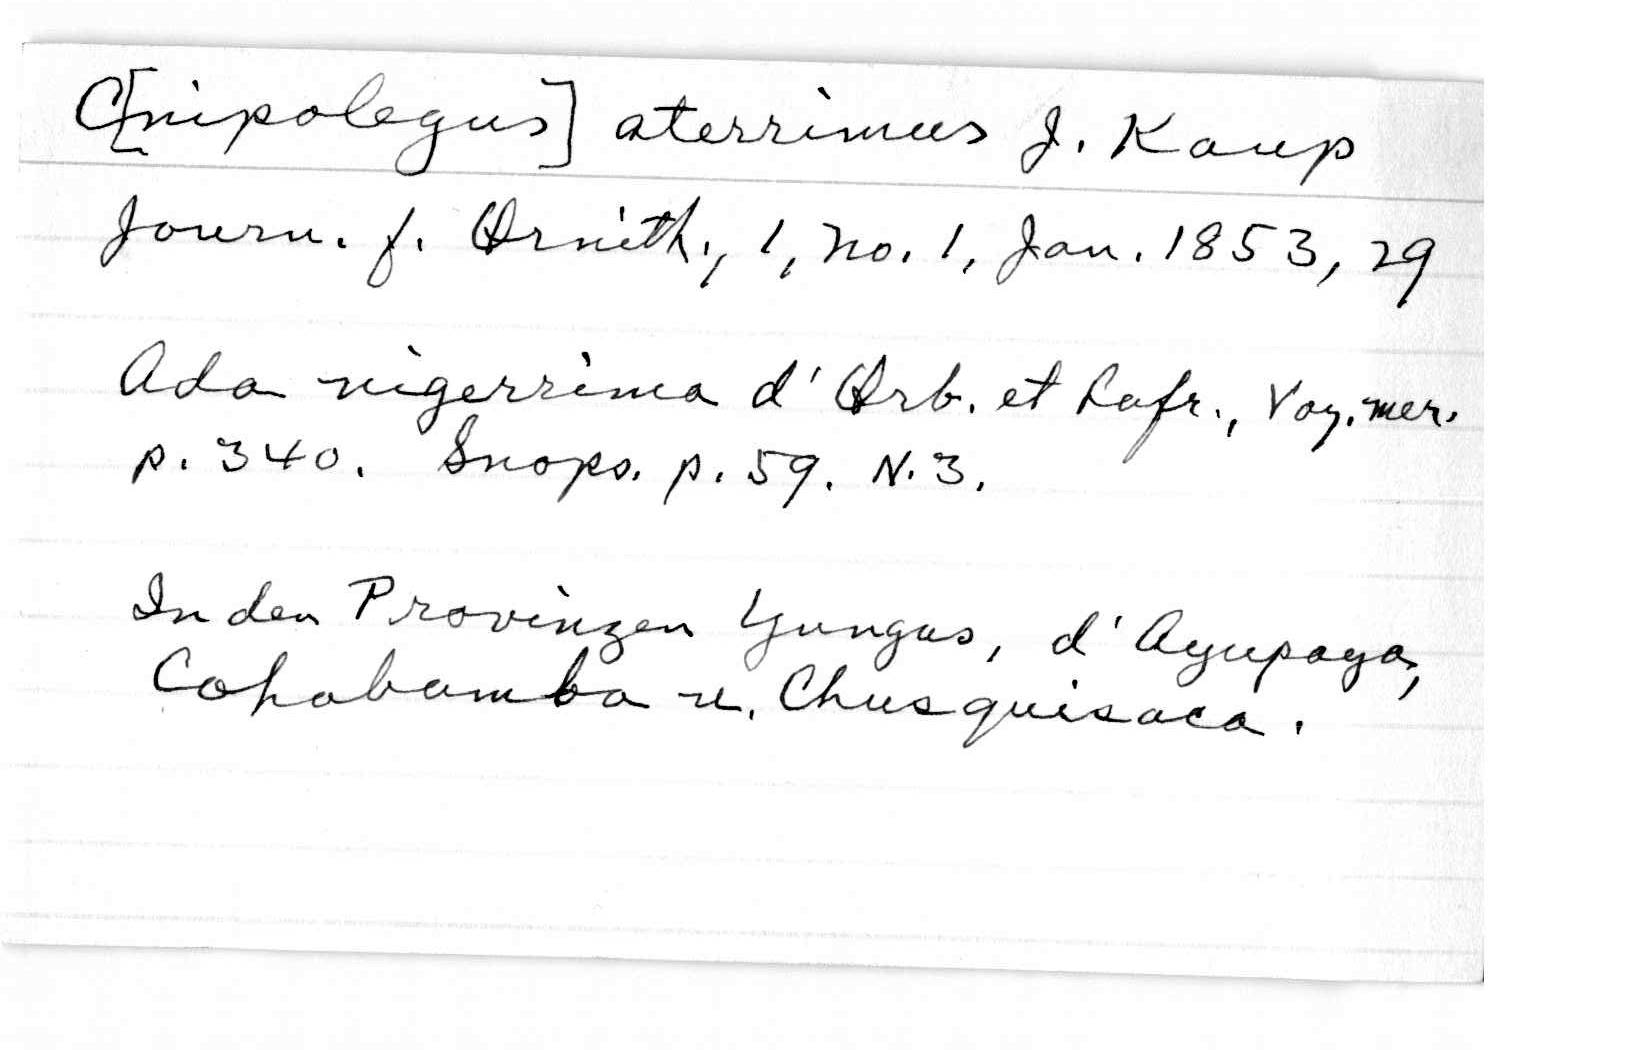 C[nipolegus] aterrimus J. Kaup
Journ. f. Ornith., 1, no. 1, Jan. 1853, 29
Ada nigerrima d'Orb. et Lafr., Voy. mer.
p. 340. Snops. p. 59. N. 3.
In den Provinzen Yungas, d'Ayupaya,
Cohabamba u. Chusquisaca.